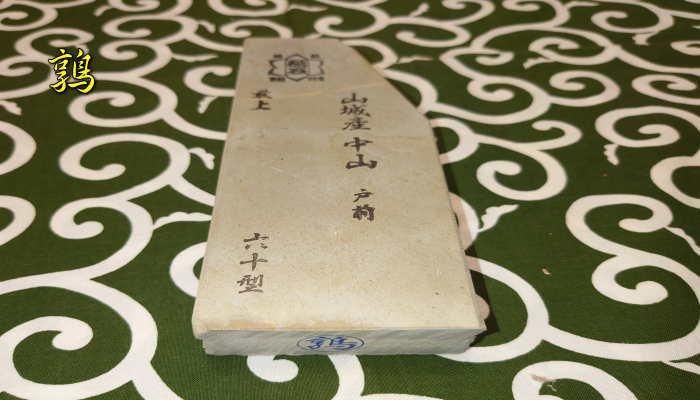 鶉
最上
山城産中山 戸前
六十型
鶉